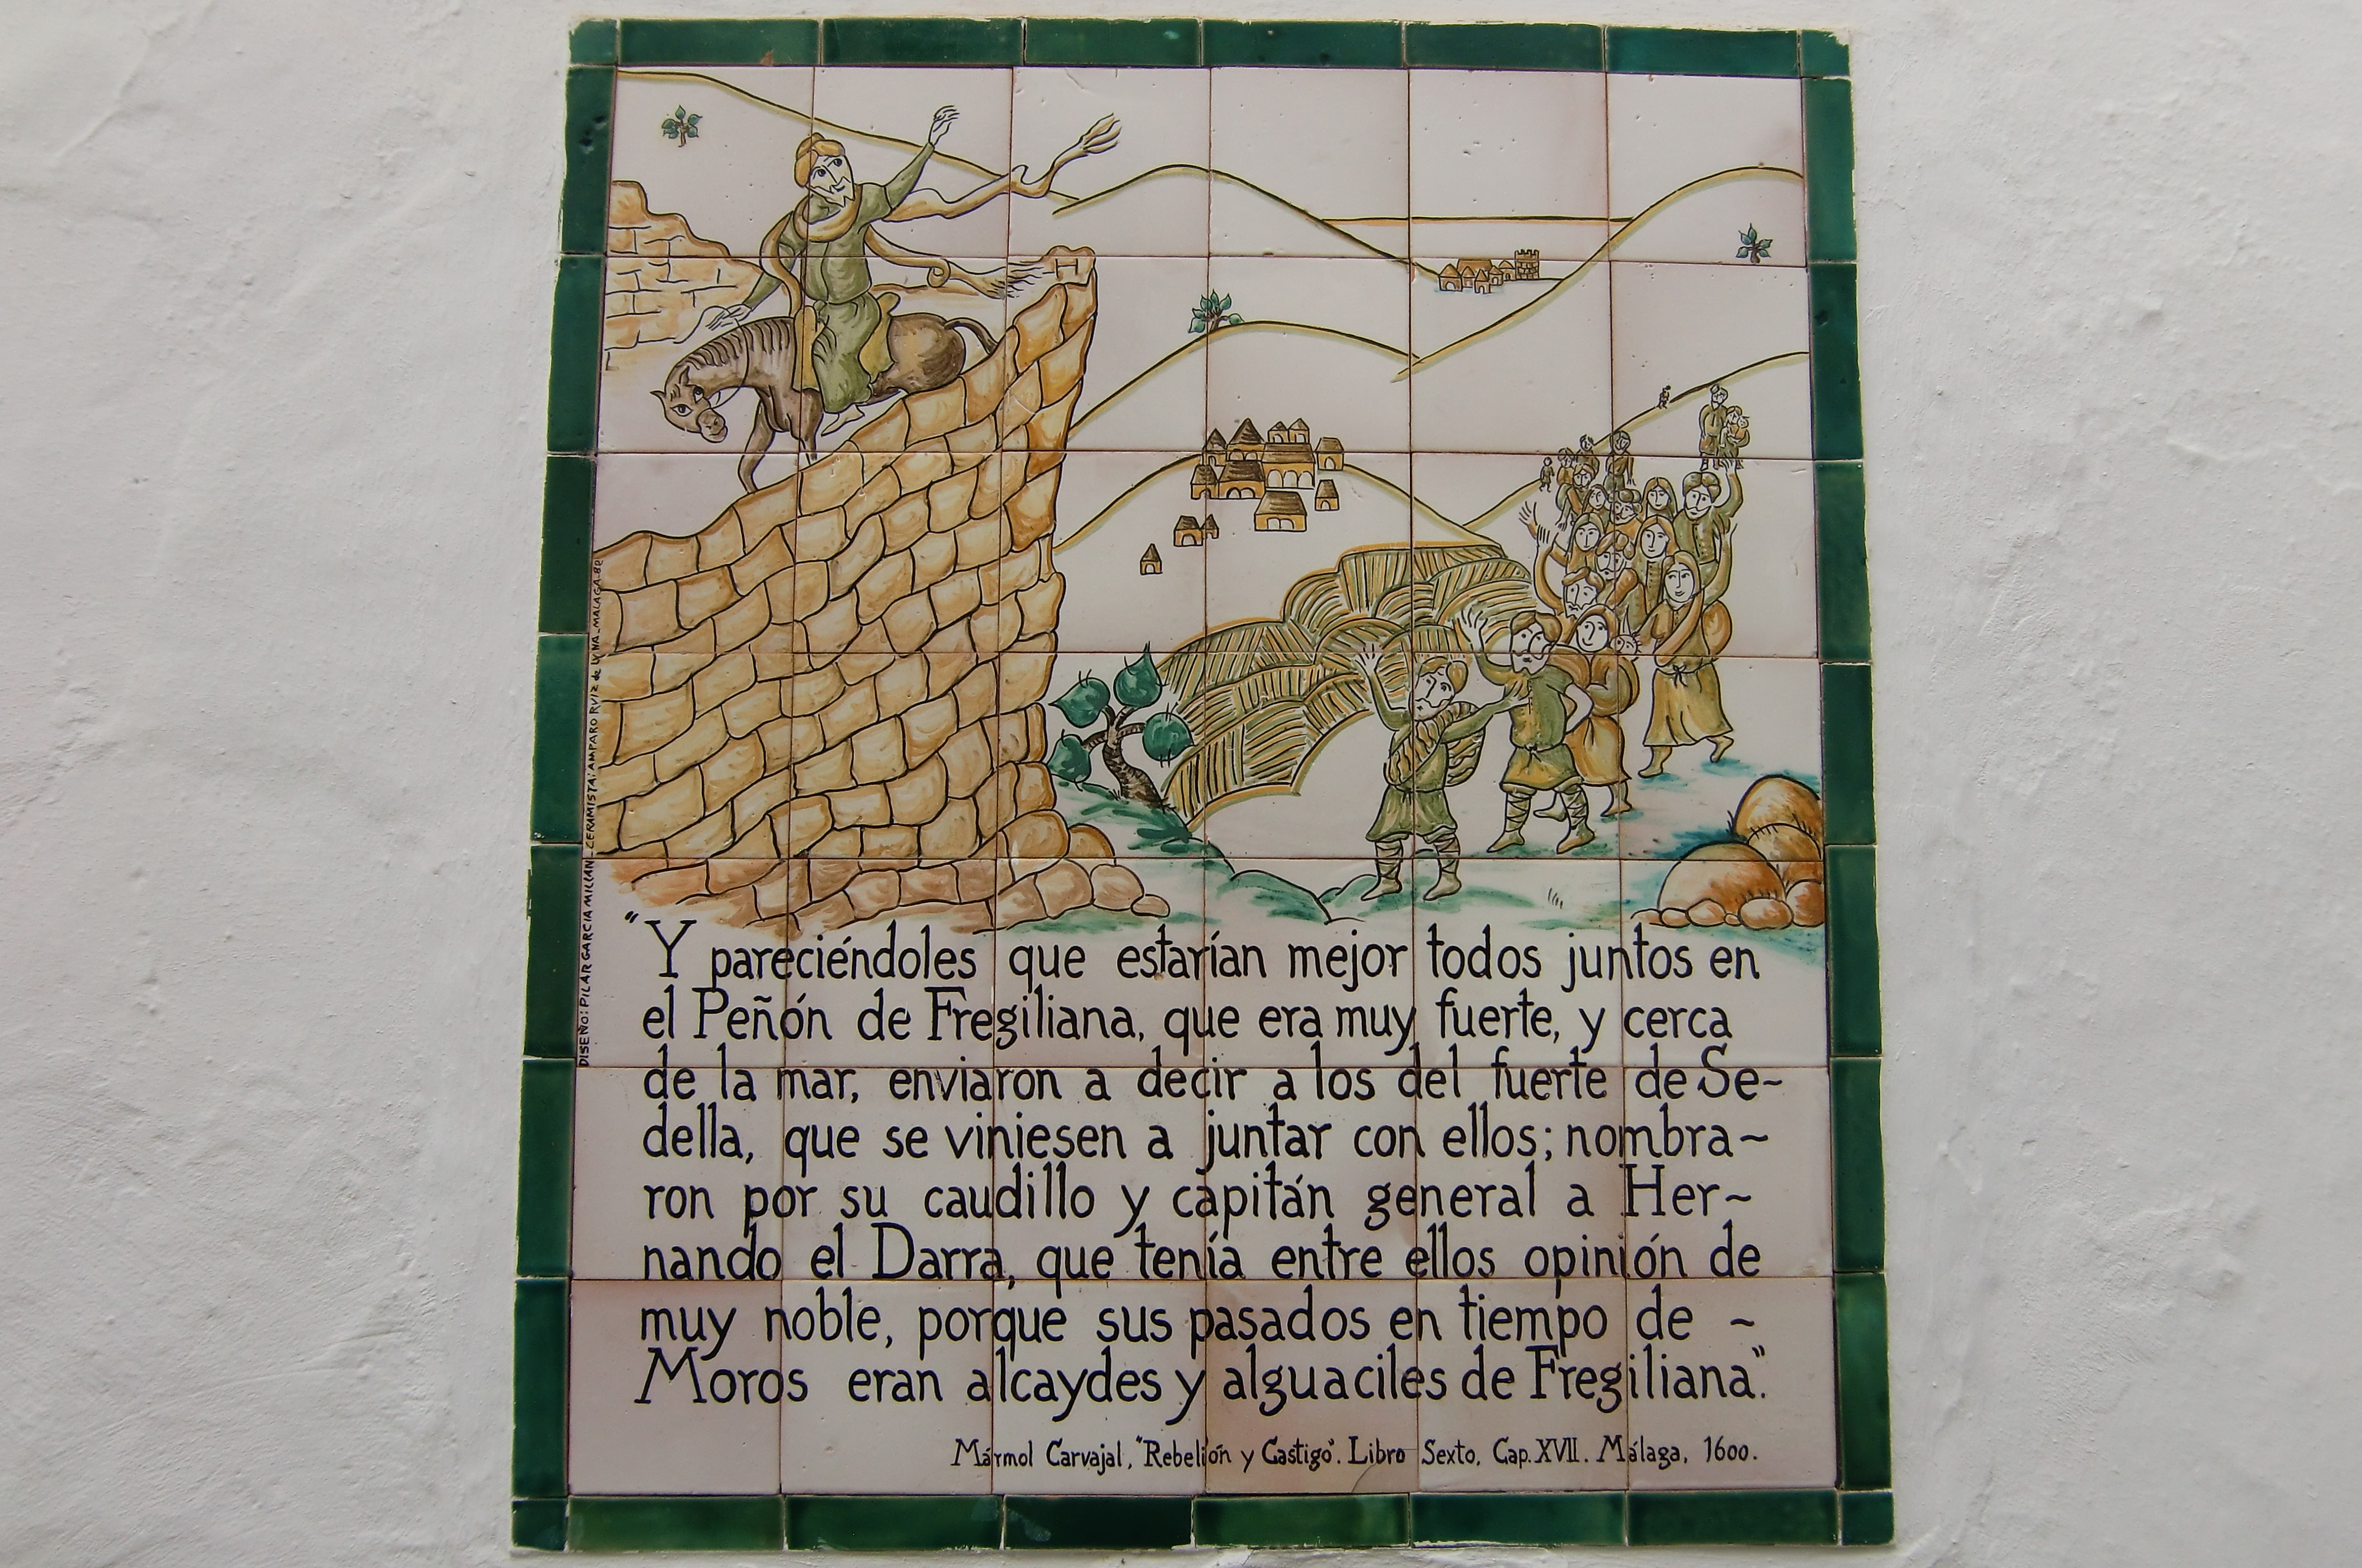 "Y pareciéndoles que estarían mejor todos juntos en
el Peñón de Fregiliana, que era muy fuerte, y cerca
de la mar, enviaron a decir a los del fuerte de Se~
della, que se viniesen a juntar con ellos; nombra~
ron por su caudillo y capitán general a Her~
nando el Darra, que tenía entre ellos opinión de
muy noble, porque sus pasados en tiempo de ~
Moros eran alcaydes y alguaciles de Fregiliana".
Mármol Carvajal, "Rebelión y Castigo". Libro Sexto, Cap. XVII. Málaga, 1600.
DISEÑO: PILAR GARCIA MILLAN _ CERAMISTA: AMPARO RVIZ de LVNA _ MALAGA-